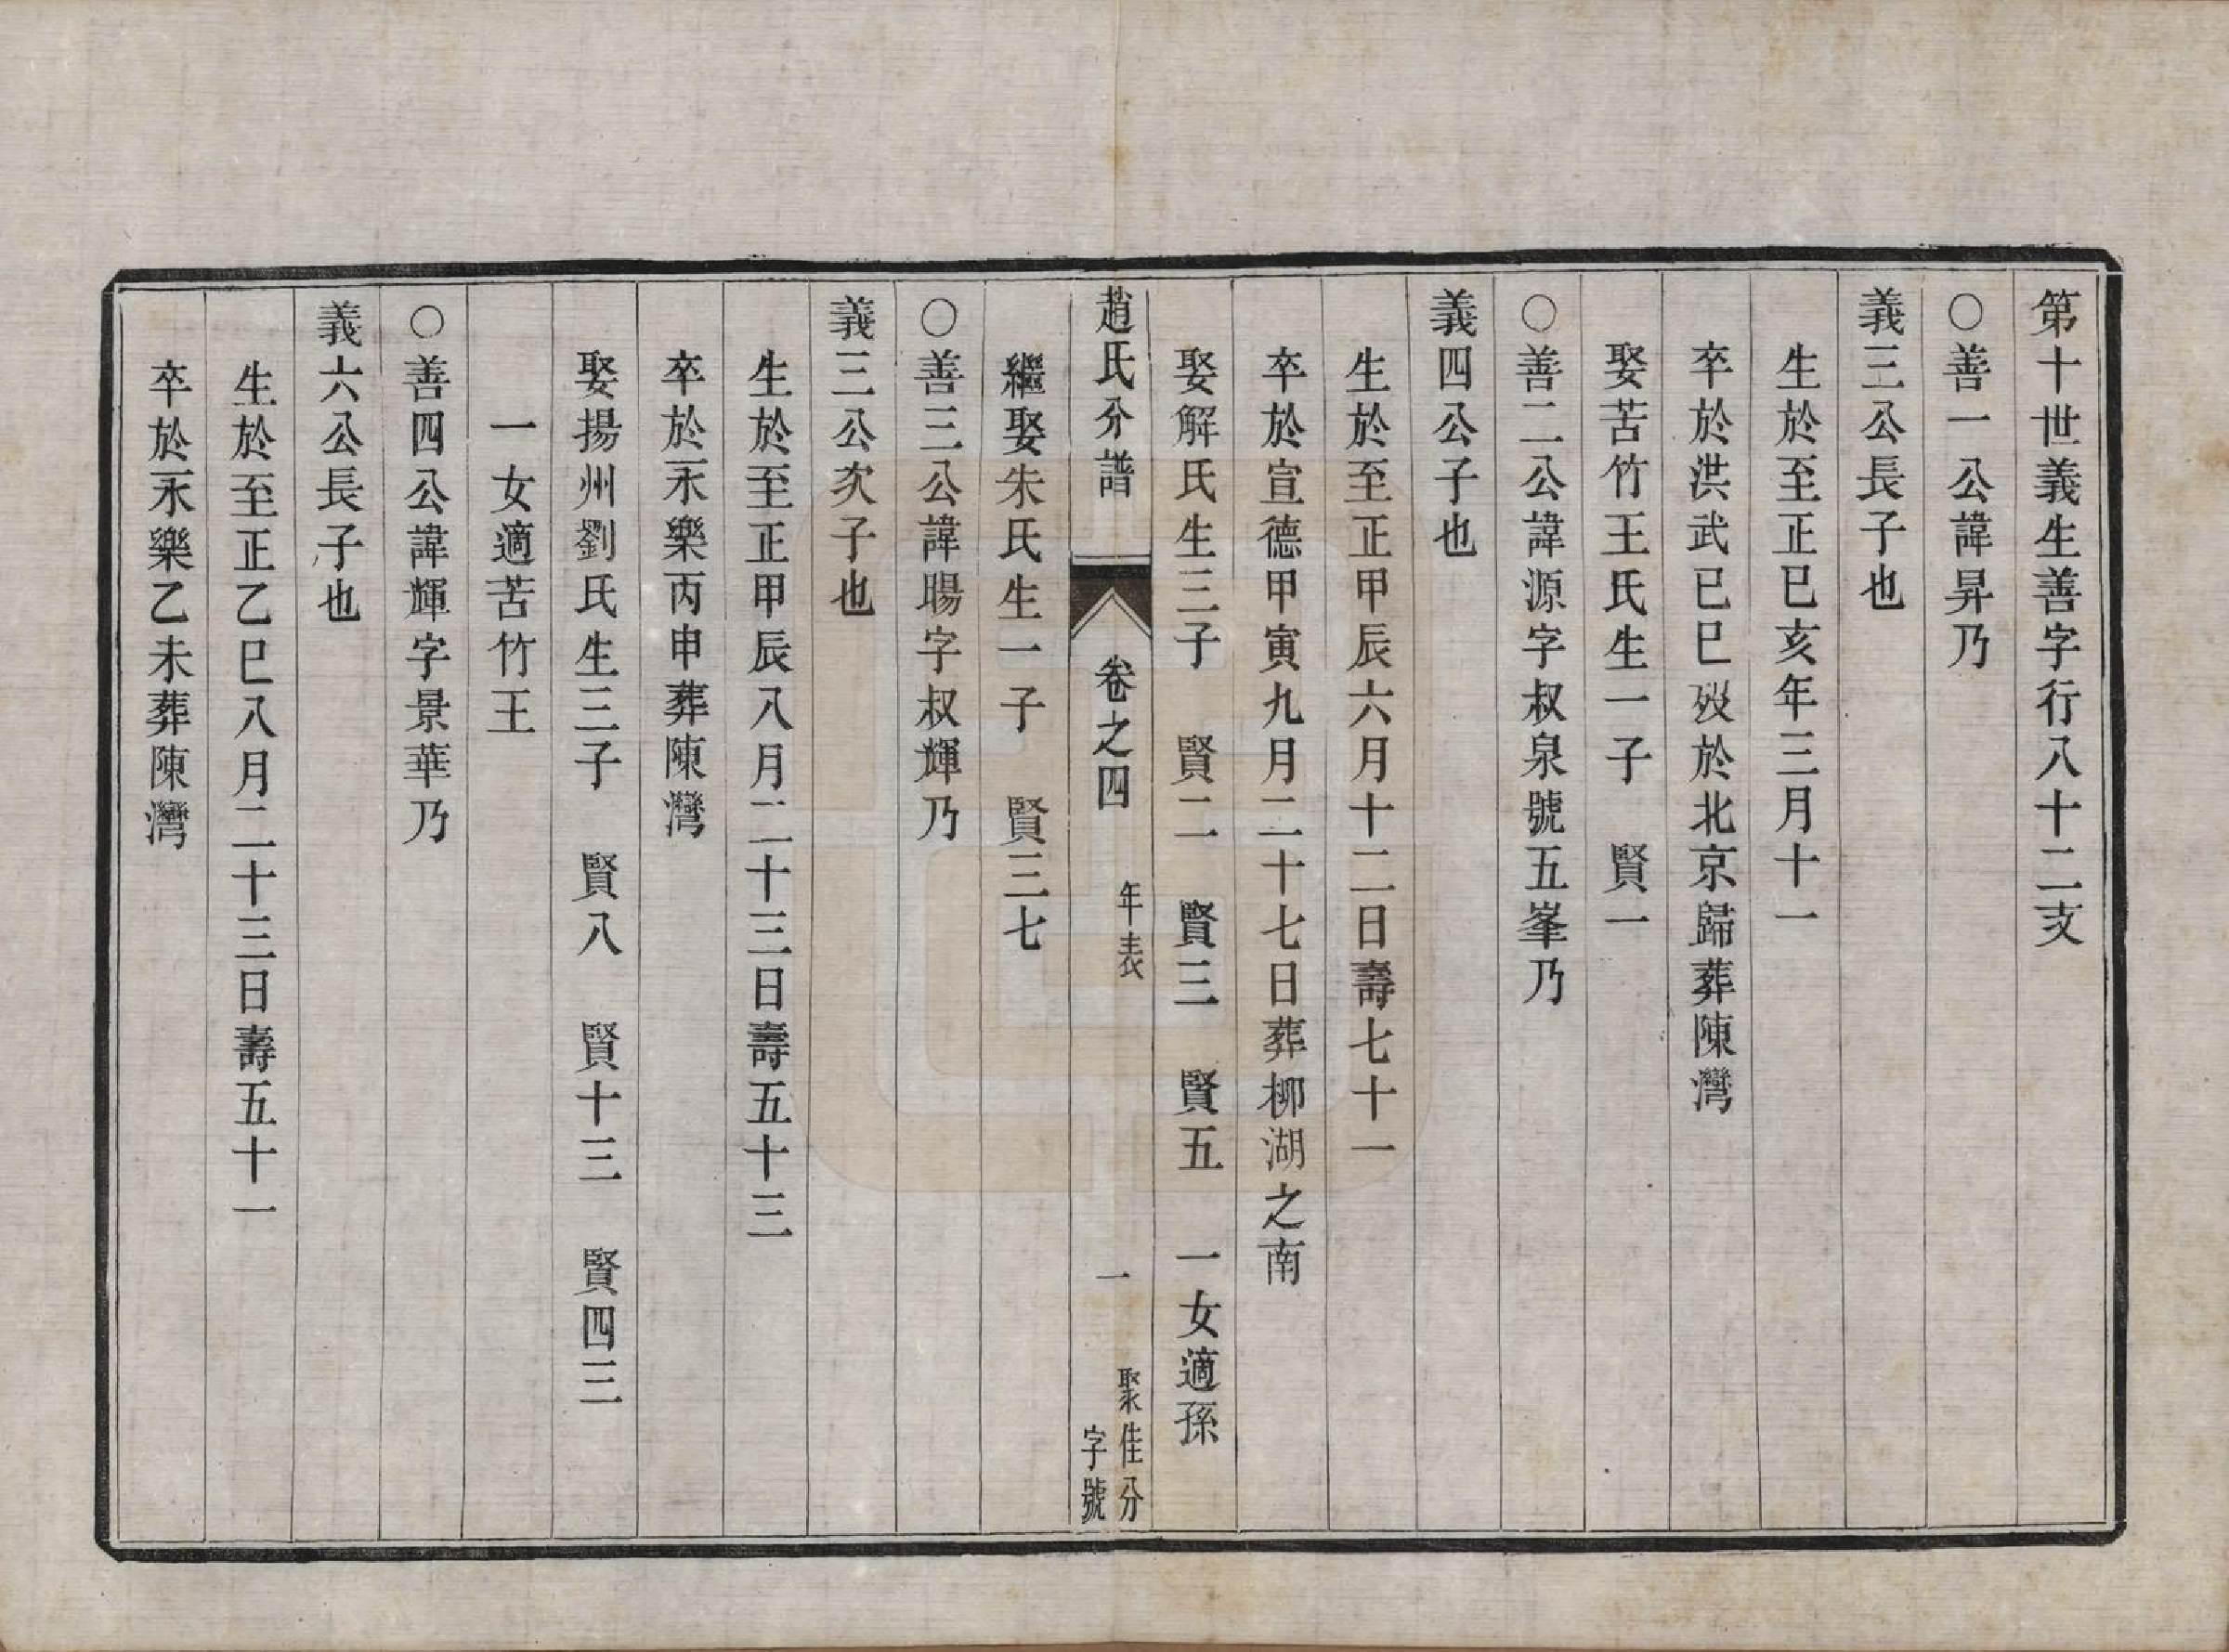 第十世義生善字行八十二支
○善一公諱昇乃
義三公長子也
生於至正已亥年三月十一
卒於洪武已巳歿於北京歸葬陳灣
娶苦竹王氏生一子　賢一
○善二公諱源字叔泉號五峯乃
義四公子也
生於至正甲辰六月十二日壽七十一
卒於宣德甲寅九月二十七日葬柳湖之南
娶解氏生三子　賢二　賢三　賢五　一女適孫
趙氏分譜　卷之四　年表　一　聚佳分字號
繼娶朱氏生一子　賢三七
○善三公諱暘字叔輝乃
義三公次子也
生於至正甲辰八月二十三日壽五十三
卒於永樂丙申葬陳灣
娶揚州劉氏生三子　賢八　賢十三　賢四三
一女適苦竹王
○善四公諱輝字景華乃
義六公長子也
生於至正乙巳八月二十三日壽五十一
卒於永樂乙未葬陳灣